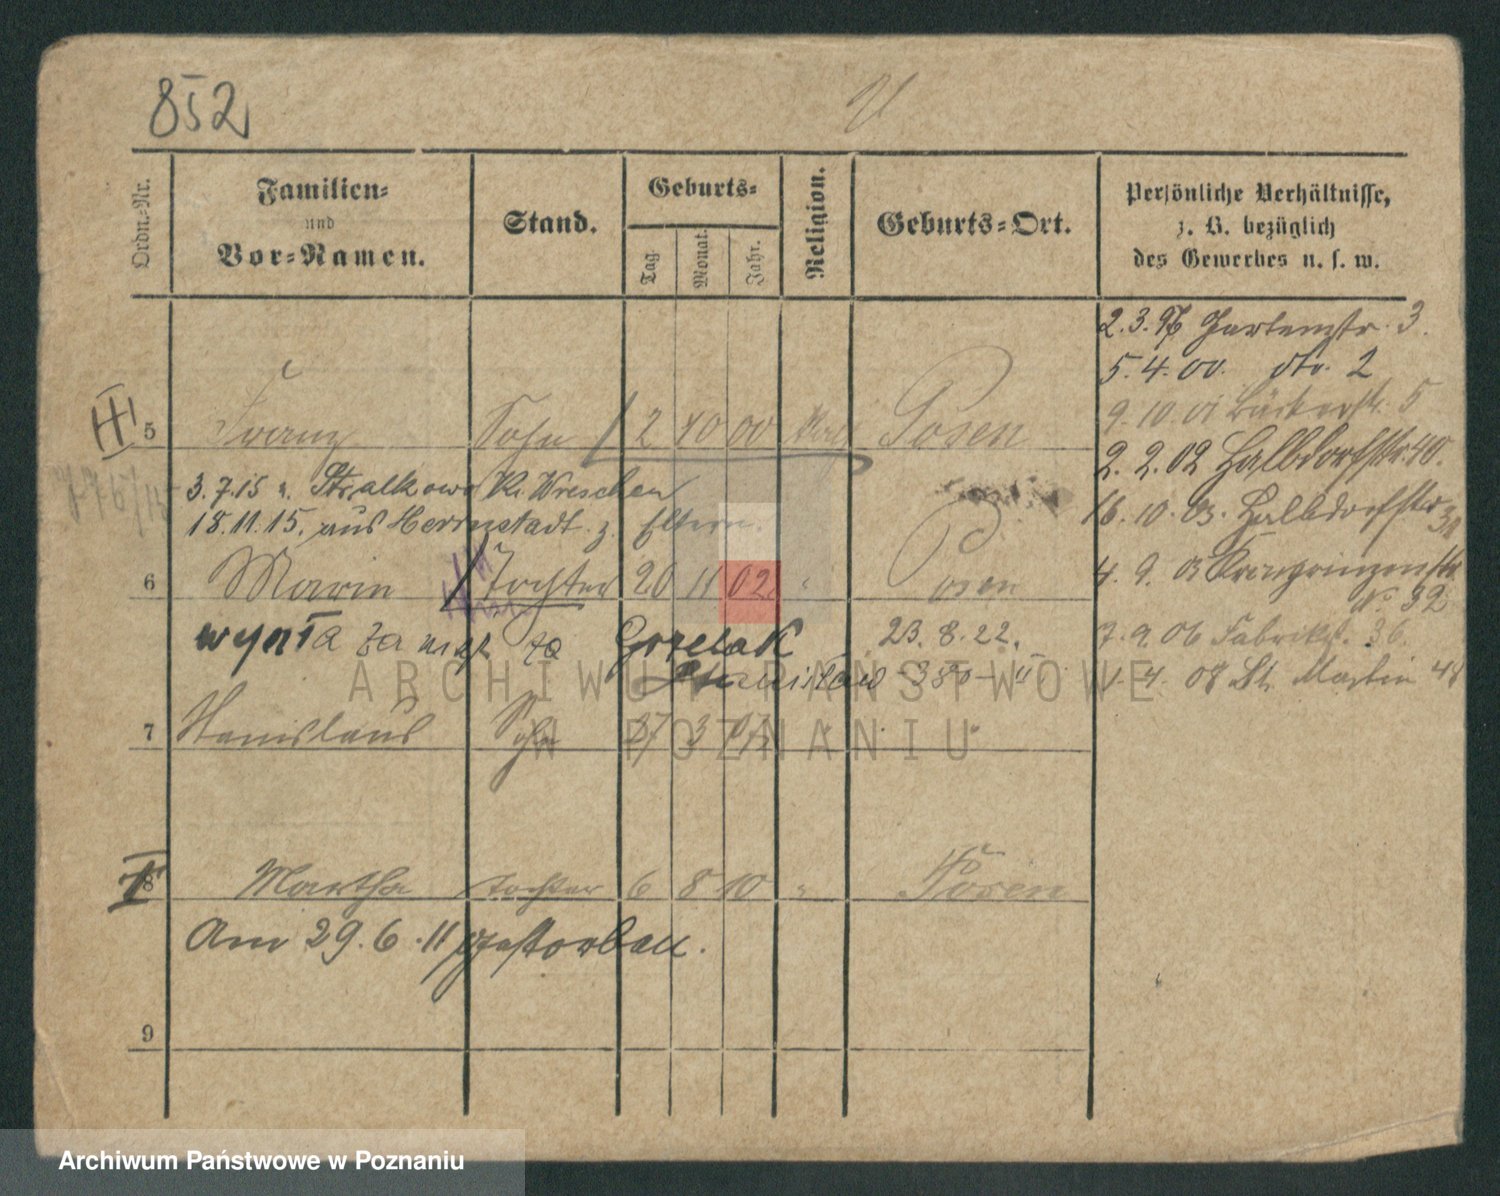 852
Ordn.-Nr.
Familien-
und
Vor-Namen.
Stand.
Geburts-
Tag.
Monat.
Jahr.
Religion.
Geburts-Ort.
Persönliche Verhältnisse,
z. B. bezüglich
des Gewerbes u. s. w.
2.3.96 Gartenstr. 3.
5.4.00. Str. 2
9.10.01 Bäckerstr. 5
2.2.02 Halbdorfstr. 40.
16.10.03. Halbdorfstr.
4.9.03 Kronprinzenstr.
N. 92
7.9.06 Fabrikst. 36.
1.4.08 St. Martin 48
III
5 Franz Sohn 12 10 00 Posen
3.7.15 n. Stralkowo Kr. Wreschen
18.11.15. aus Herrnstadt z. Eltern.
6 Marie Tochter 20 11 02 Posen
wyszła za mąż za Gorzelak 23.8.22.
Stanisław
7 Stanislaus Sohn 27 3
8 Martha Tochter 6 8 10 " Posen
Am 29.6.11 gestorben.
9
ARCHIWUM PAŃSTWOWE
W POZNANIU
Archiwum Państwowe w Poznaniu